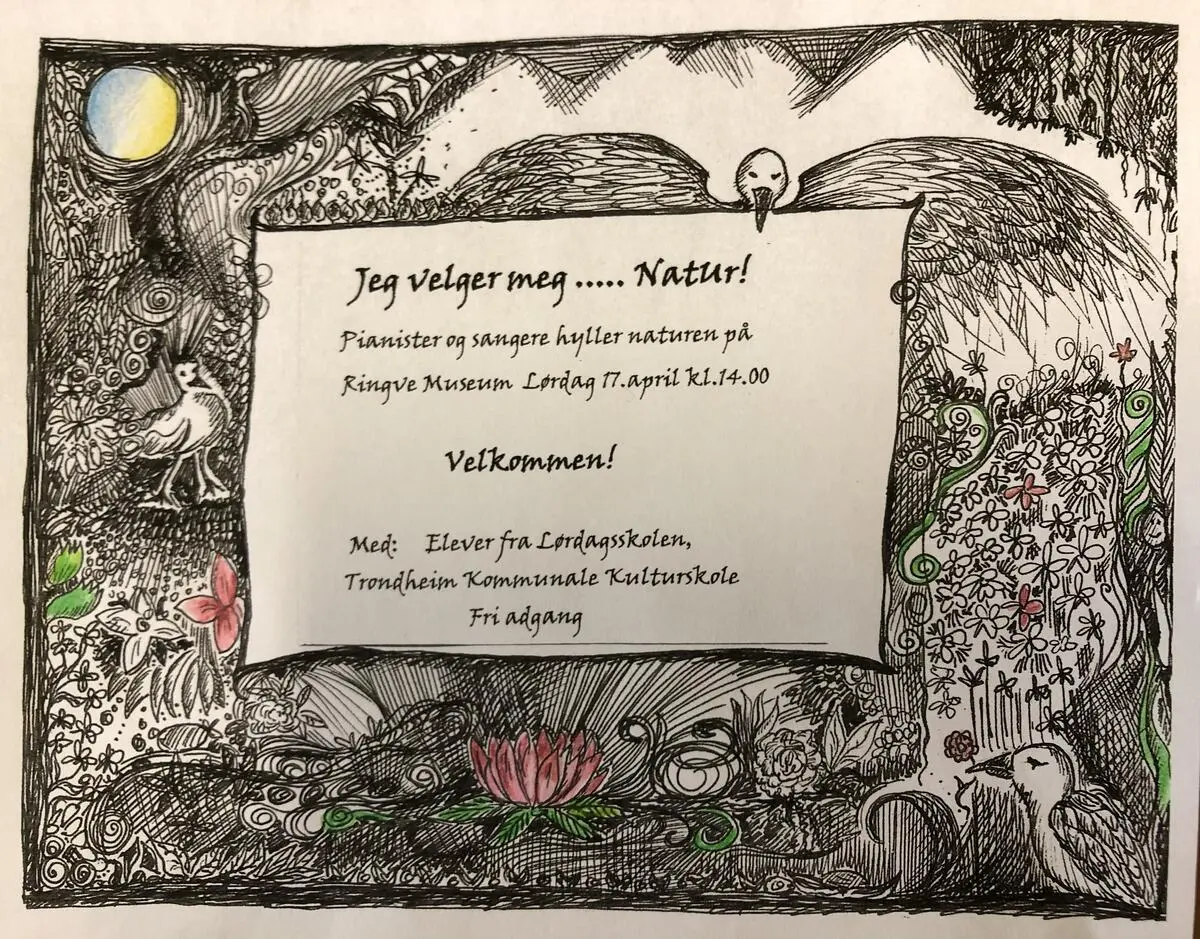 Jeg velger meg ..... Natur!
Pianister og sangere hyller naturen på
Ringve Museum Lørdag 17.april kl.14.00
Velkommen!
Med: Elever fra Lørdagsskolen,
Trondheim Kommunale Kulturskole
Fri adgang